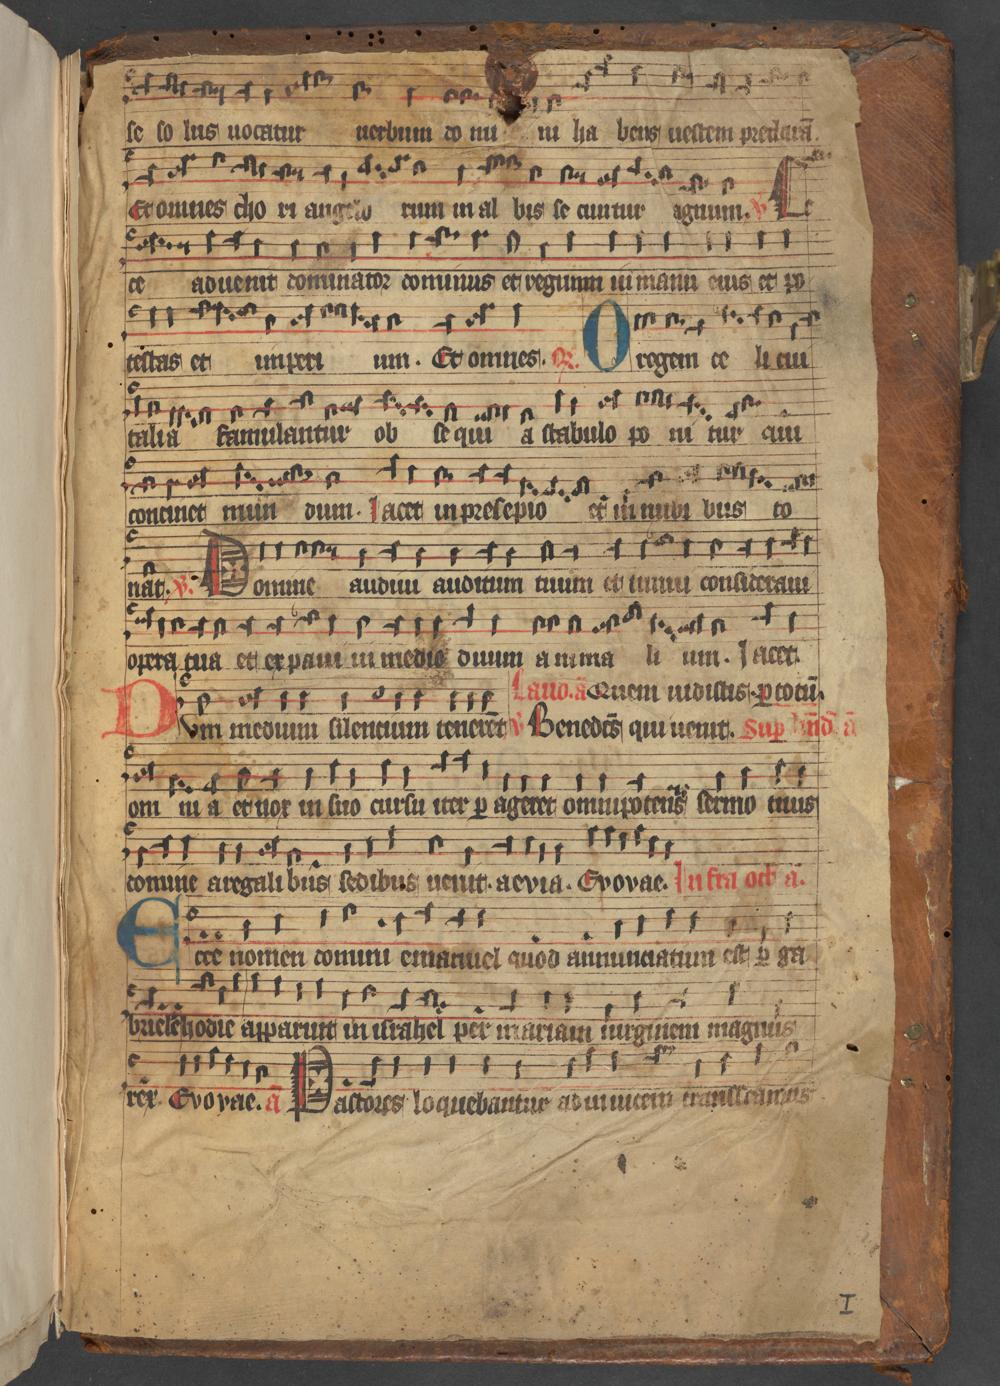 se so lus uocatur uerbum do mi ni ha bens uestem preclarā
Et omnes cho ri angelo rum in al bis se cuntur agnum. v̄ E
ce aduenit dominator dominus et regnum in manu eius et po
testas et imperi um. Et omnes. R̄. O regem ce li cui
talia famulantur ob se qui a stabulo po ni tur qui
continet mun dum. Iacet in presepio et in nubi bus to
nat. v̄. Domine audiui auditum tuum et timui consideraui
opera tua et expaui in medio duum a nima li um. Iacet.
Laud. ā Quem uidistis. p totū.
Dvm medium silencium tenerēt v̄ Benedcūs qui uenit. Sup bn̄d ā
om ni a et nox in suo cursu iter p ageret omnipotens sermo tuus
domine a regali bus sedibus uenit. aevia. Evovae. Infra oct ā.
Ecce nomen domini emanuel quod annunciatum est p ga
brielē hodie apparuit in israhel per mariam uirginem magnus
rex. Evovae. ā Pastores loquebantur ad inuicem transeamus
I